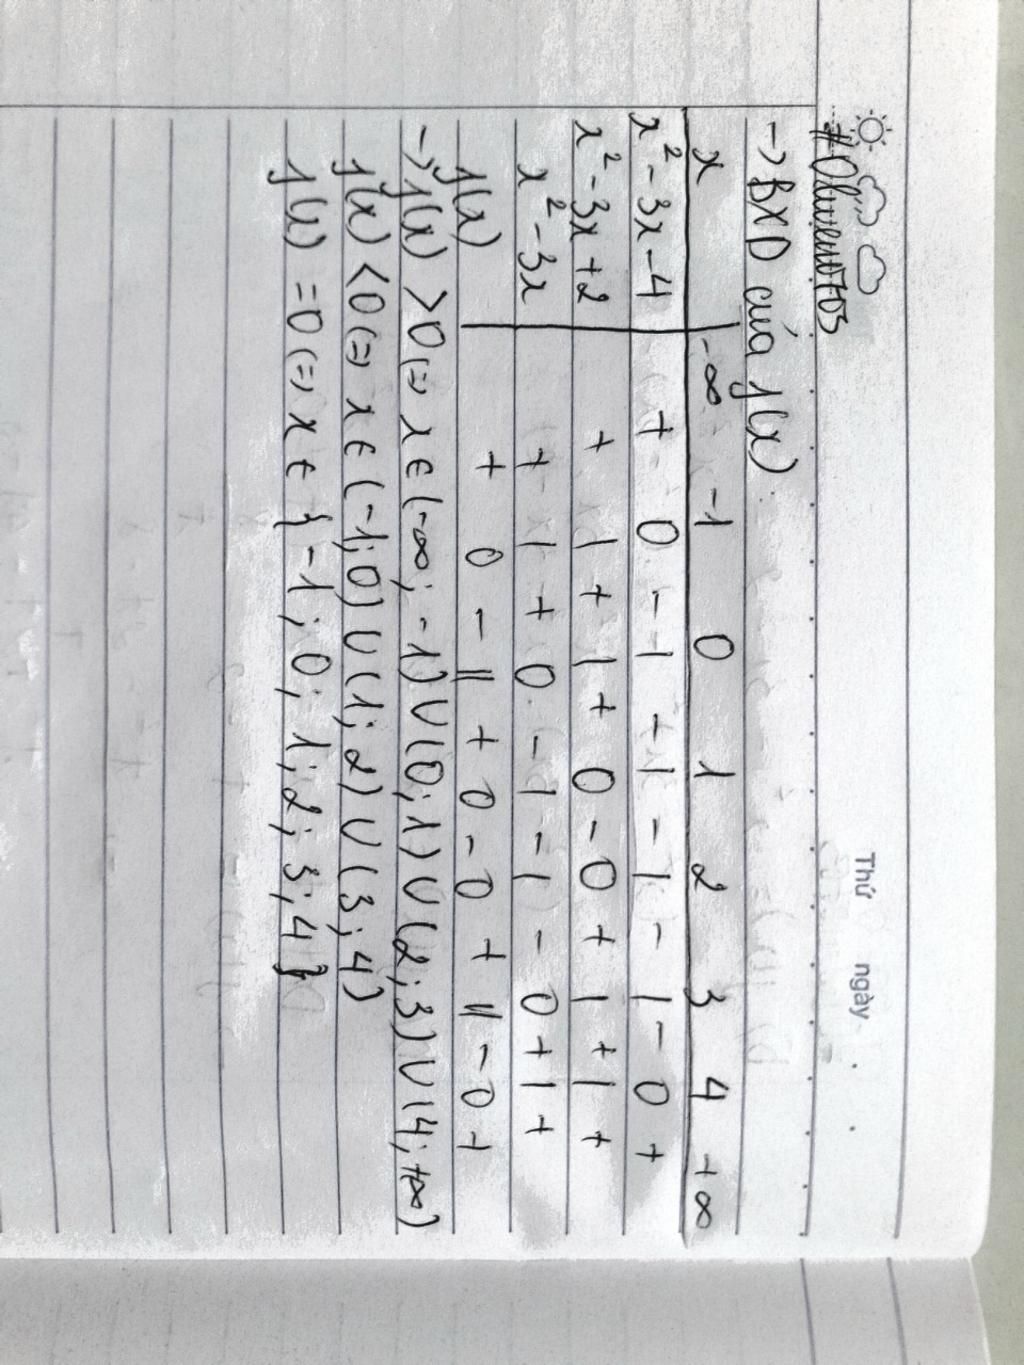 Thứ ngày . .
#Oliwem0703
→ BXD của f(x)
x -∞ -1 0 1 2 3 4 +∞
x² - 3x - 4 + 0 - | - | - | - | - 0 +
x² - 3x + 2 + | + | + 0 - 0 + | + | +
x² - 3x + | + 0 - | - | - 0 + | +
f(x) + 0 - || + 0 - 0 + || - 0 +
→ f(x) > 0 (=> x ∈ (-∞; -1) ∪ (0; 1) ∪ (2; 3) ∪ (4; +∞)
f(x) < 0 (=> x ∈ (-1; 0) ∪ (1; 2) ∪ (3; 4)
f(x) = 0 (=> x ∈ { -1; 0; 1; 2; 3; 4 }